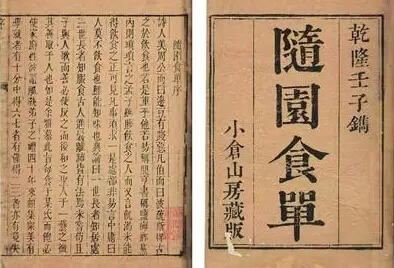 乾隆壬子鐫
隨園食單
小倉山房藏版
隨園食單序
詩人美周公而曰籩豆有踐惡凡伯而曰彼疏斯稗古
之於飲食也若是重乎他若易稱鼎烹書稱鹽梅鄉黨
內則瑣瑣言之孟子雖賤飲食之人而又言飢渴未能
得飲食之正可見凡事須求一是處都非易言中庸曰
人莫不飲食也鮮能知味也典論曰一世長者知居處
三世長者知服食古人進鬐離肺皆有法焉未嘗苟且
子與人歌而善必使反之而後和之聖人於一藝之微
其善取於人也如是余雅慕此旨每食於某氏而飽必
使家廚往彼灶觚執弟子之禮四十年來頗集衆美有
學就者有十分中得六七者有僅得二三者亦有竟失